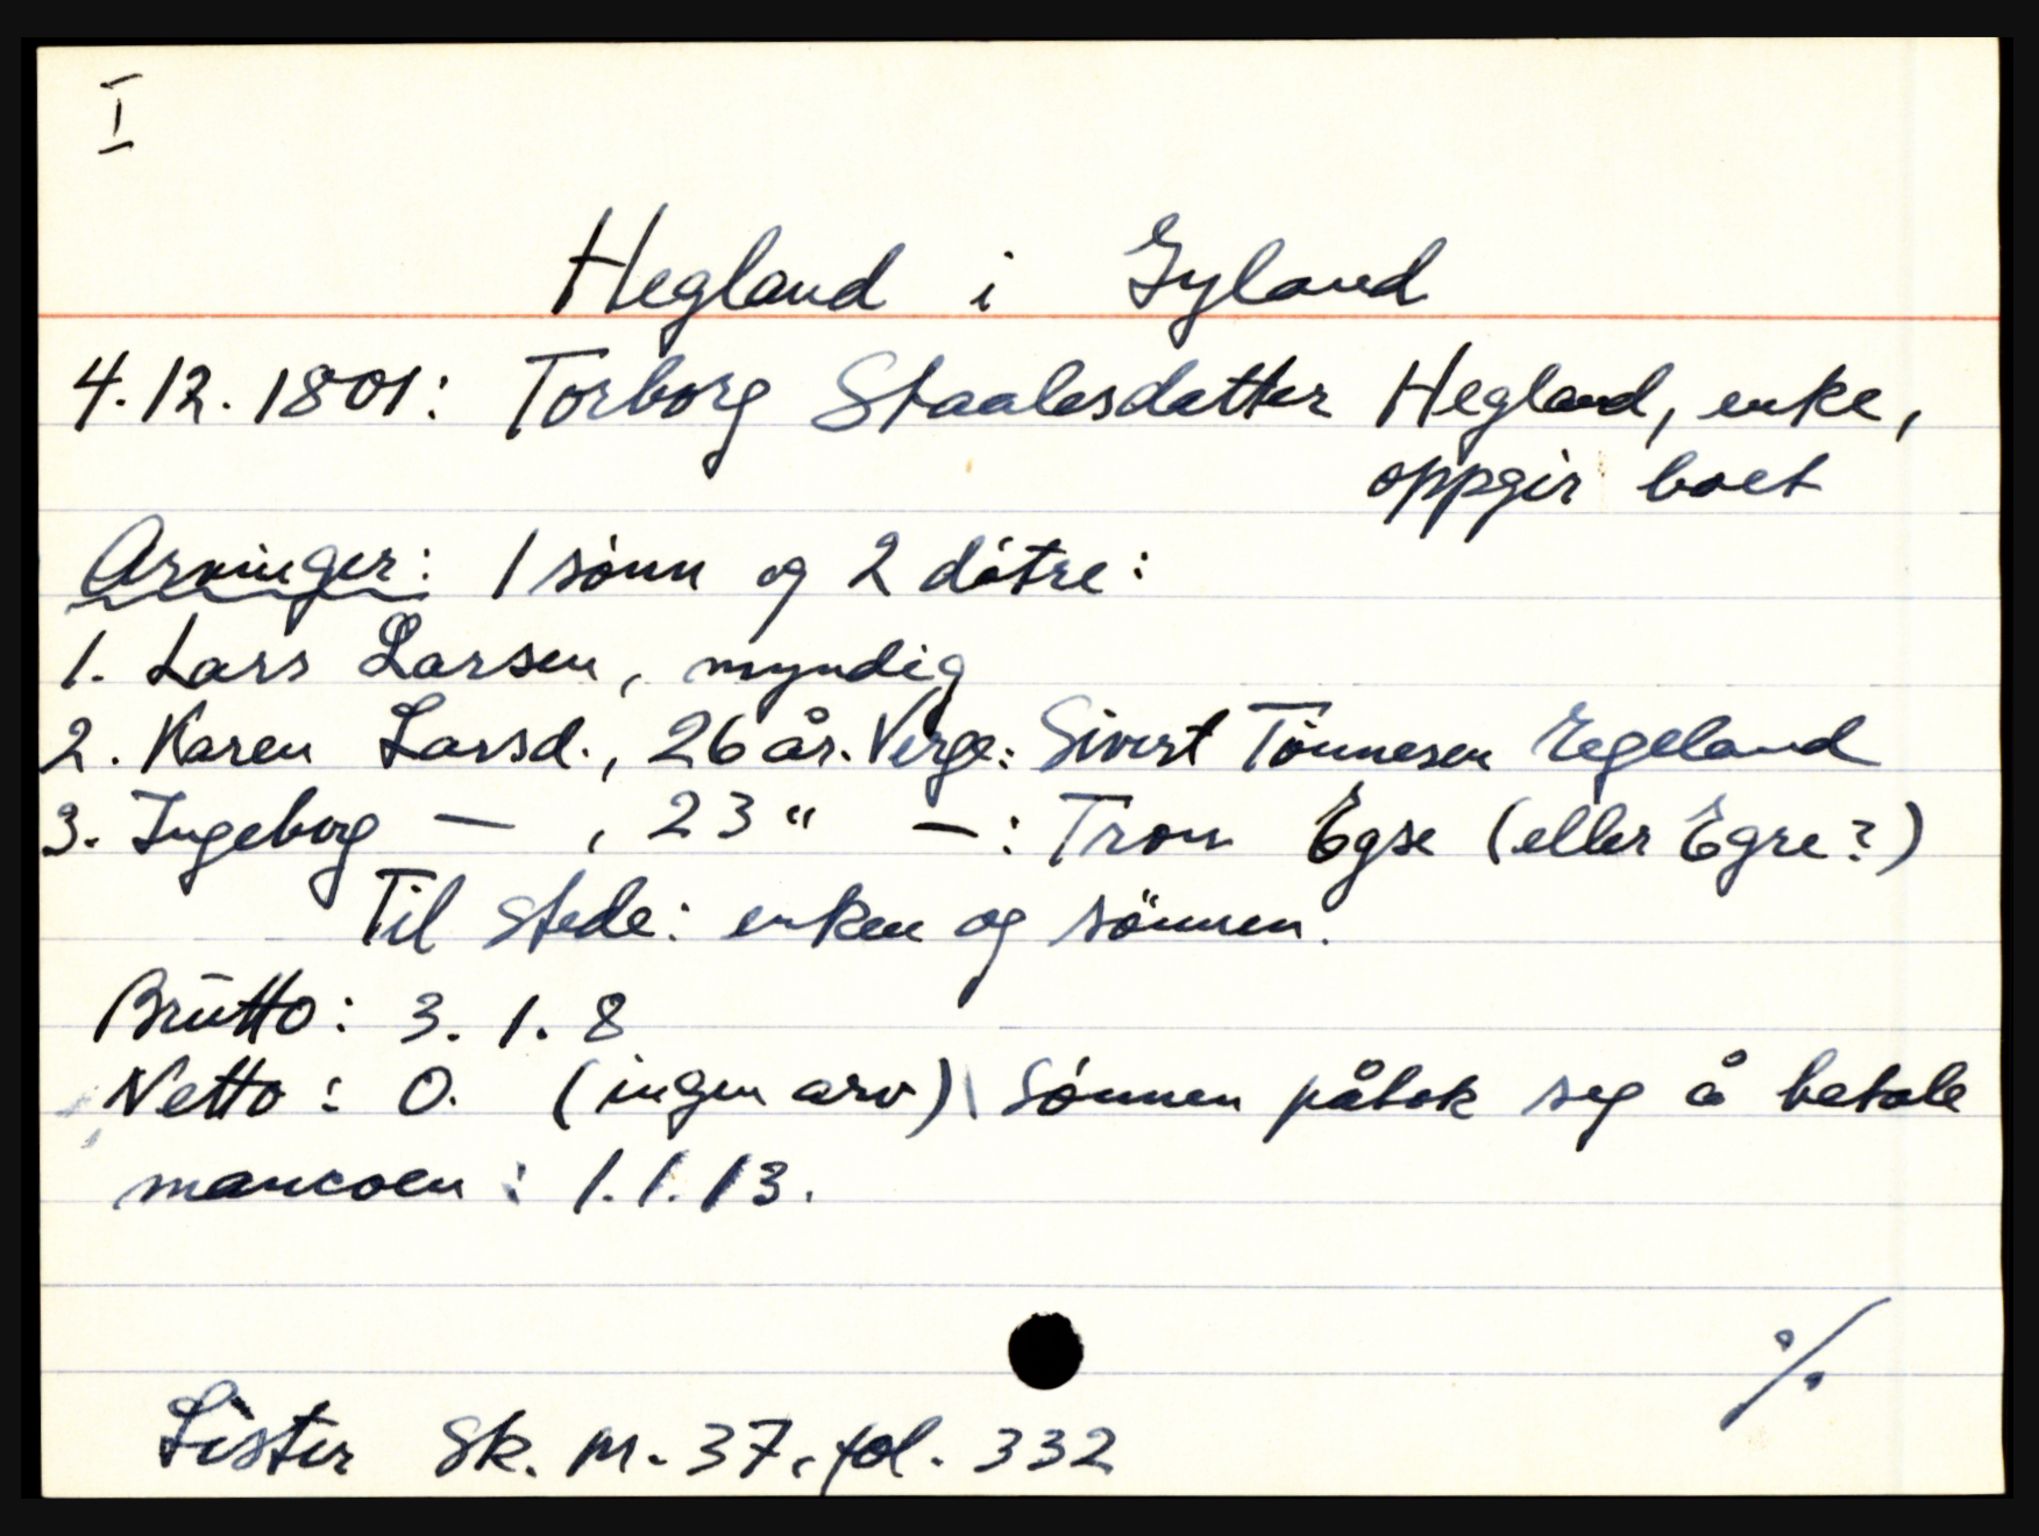 I
Hegland i Gyland
4.12.1801: Torborg Staalesdatter Hegland, enke,
oppgir boet
Arvinger: 1 sønn og 2 døtre:
1. Lars Larsen, myndig
2. Karen Larsd., 26 år. Verge: Sivert Tønnesen Egeland
3. Ingeborg — , 23 " — : Tron Egse (eller Egre?)
Til stede: enken og sønnen.
Brutto: 3. 1. 8
Netto: 0. (ingen arv) Sønnen påtok seg å betale
mancoen: 1.1.13.
%
Lister Sk. nr. 37, fol. 332